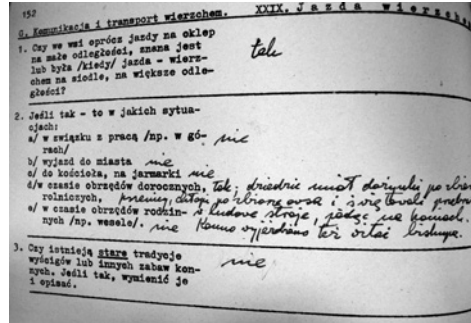 152
G. Komunikacja i transport wierzchem. XXIX. Jazda wierzche
1. Czy we wsi oprócz jazdy na oklep
na małe odległości, znana jest tak
lub była /kiedy/ jazda - wierz-
chem na siodle, na większe odle-
głości?
2. Jeśli tak - to w jakich sytua-
cjach:
a/ w związku z pracą /np. w gó- nie
rach/
b/ wyjazd do miasta nie
c/ do kościoła, na jarmarki nie
d/w czasie obrzędów dorocznych, tak; dziedzic miał dożynki po zbio
rolniczych, owsa i
e/ w czasie obrzędów rodzin- ludowe stroje, jadąc na koniach.
nych /np. wesele/. nie Konno wyjeżdżano też witać biskupa.
3. Czy istnieją stare tradycje nie
wyścigów lub innych zabaw kon-
nych. Jeśli tak, wymienić je
i opisać.